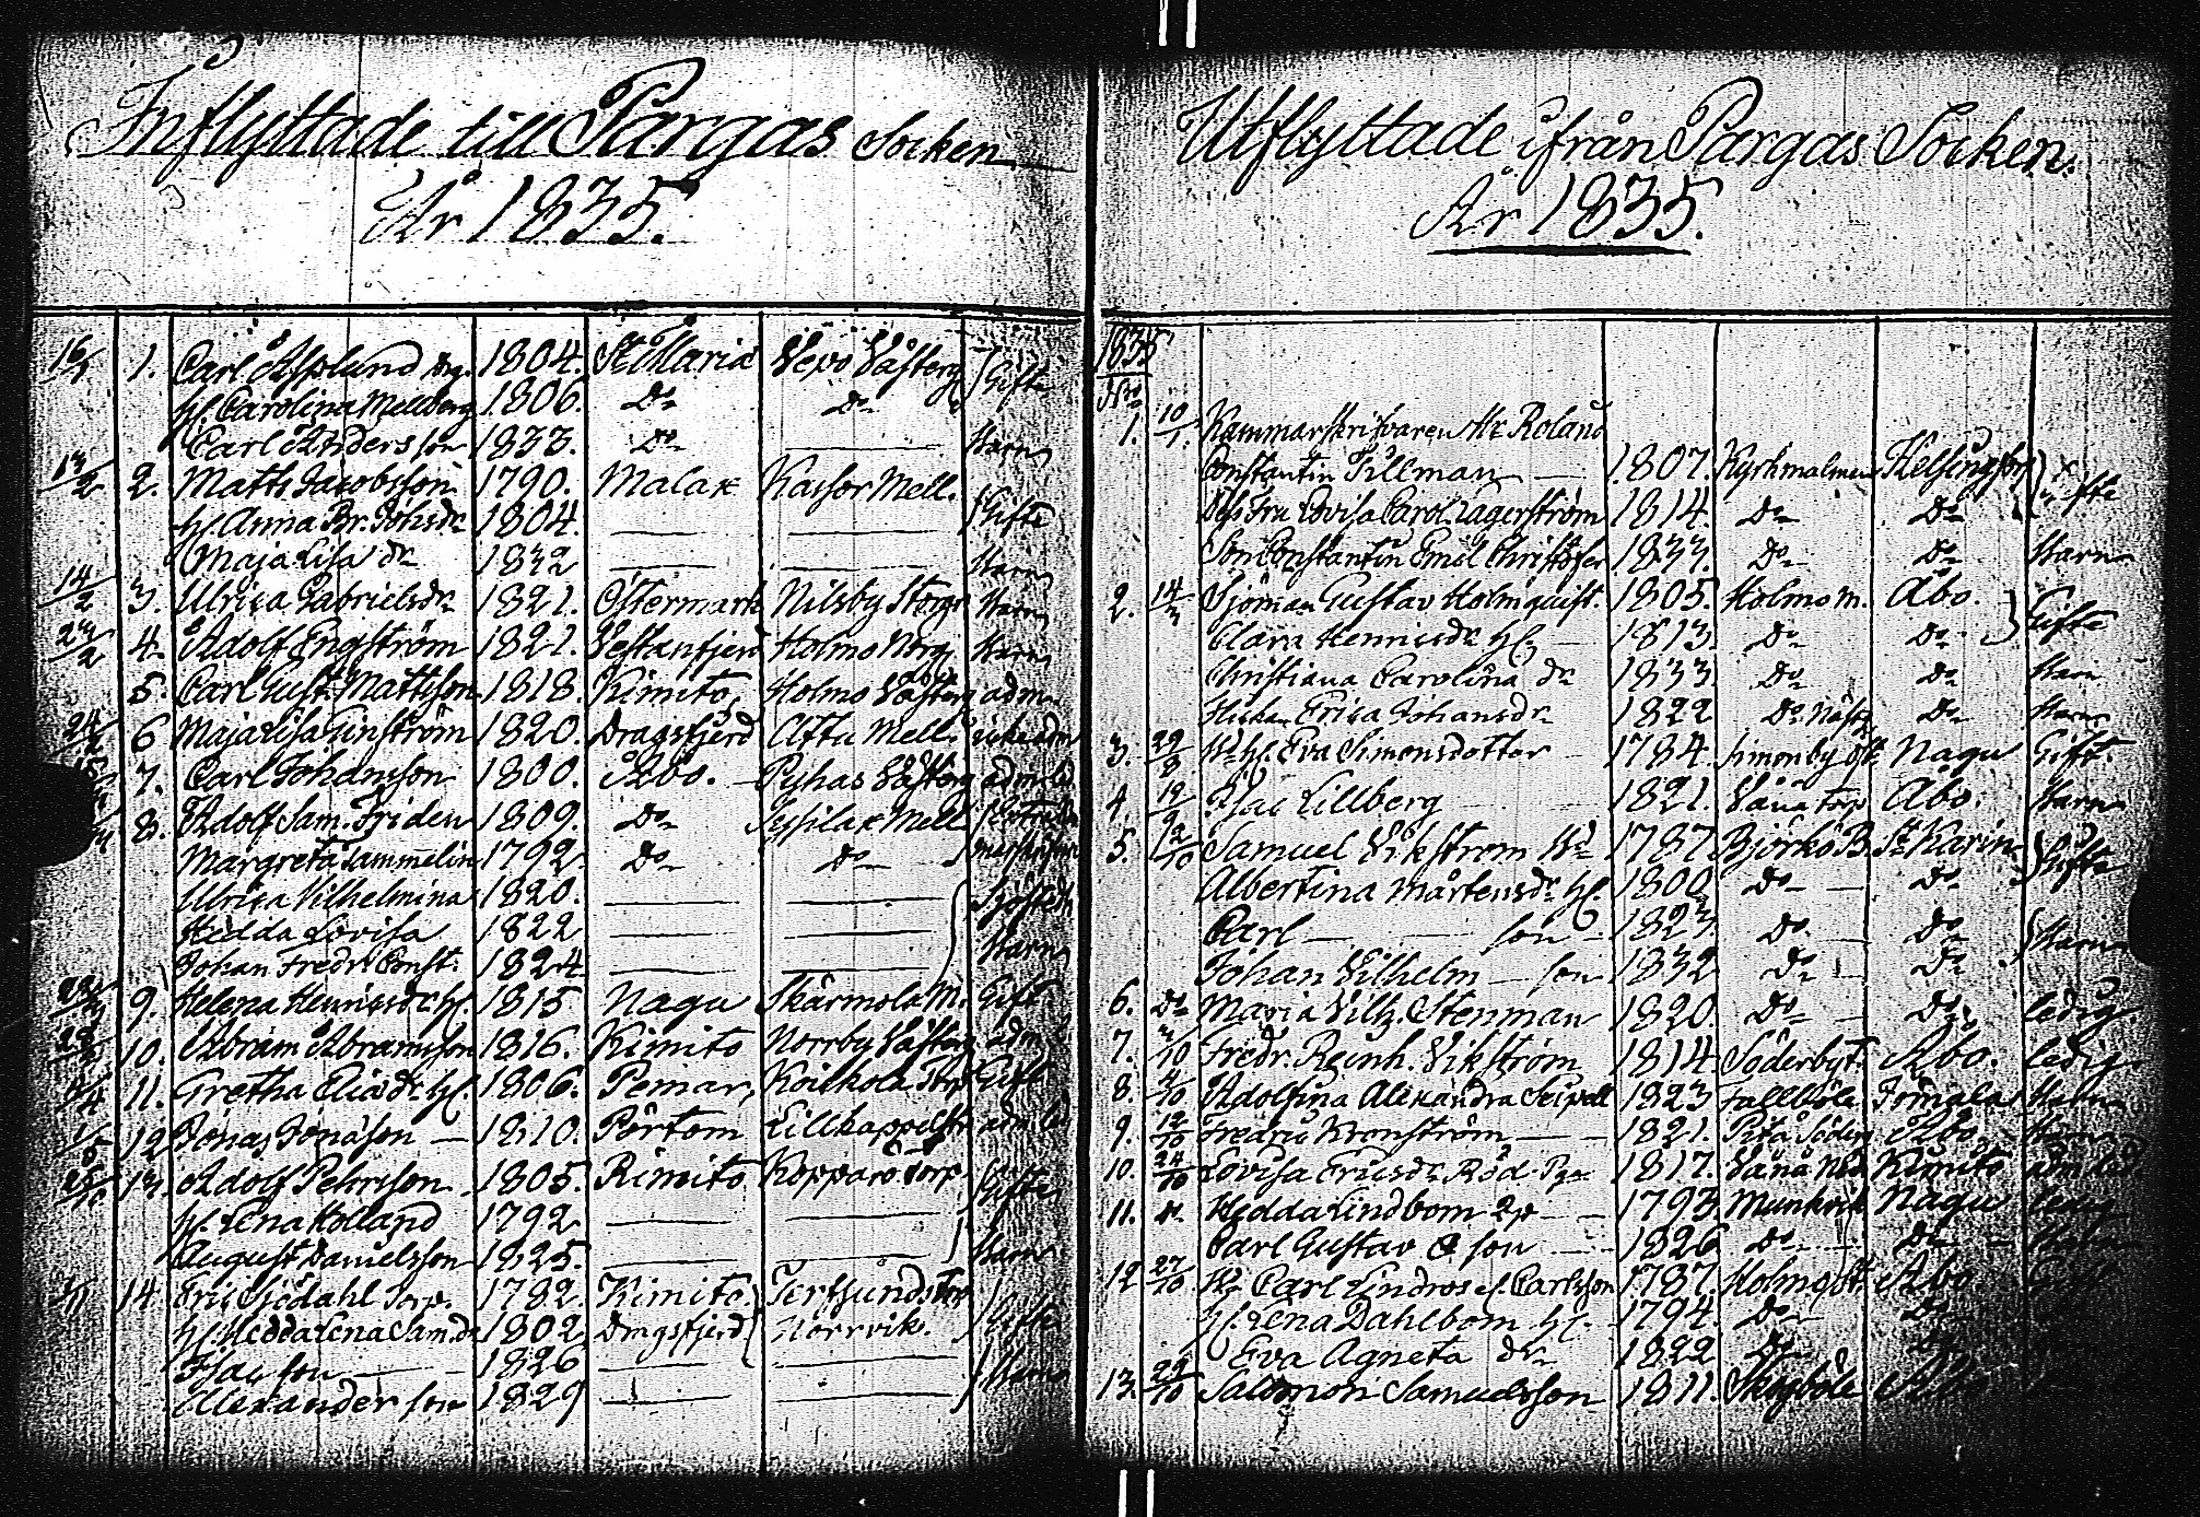 Inflyttade till Pargas Socken
År 1835.
16/1 1. Carl Asplund 1804. St Maria Vepo Västerg Gifte
hu. Carolina Mellberg 1806. Do Do
Carl Andersson 1833. Do — Barn
13/2 2. Matts Jacobsson 1790. Malax Kassor Mell.
hu. Anna Br. Johsdr 1804. — — Gifte
Maja Lisa dr 1832 — — Barn
14/2 3. Ulrica Gabrielsdr 1821. Östermark Nilsby Storg Barn
4. Adolf Engström 1821. Vestanfjerd Holmo Norrg Barn
5. Carl Gust. Mattsson 1818. Kimito Holmo Västerg adm.
6 Maja Lisa Enström 1820. Dragsfjerd Attu Mell.
7. Carl Johansson 1800. Åbo. Pyhas Västerg
8. Adolf Sam. Friden 1809. Do Jessilax Mell
Margreta Sammelin 1792 Do Do
Ulrica Vilhelmina 1820. — —
Hedda Lovisa 1822 — —
Johan Fredr. Const. 1824 — — Barn
9. Helena Henricsdr hu. 1815 Nagu Skärmola M. Gift
10. Abram Abramsson 1816. Kimito Norrby Västerg adm
11. Gretha Eliædr hu. 1806. Pemar, Koiskola Torp Gift
1/5 12 Jonas Jonasson — 1810. Pörtom Lillkappelstr. adm led
13. Adolf Pehrsson 1805. Rimito Kopparö torp Gifte
hu. Lena Holland 1792 — —
August Danielsson 1825. — — Barn
14. Eric Sjödahl Torp. 1782. Kimito Tertsunds torp
hu. Hedda Lena Sam.dr 1802 Dragsfjerd Norrvik. Gifte
Isac son — 1826 — —
Alexander son 1829 — — Barn
Utflyttade ifrån Pargas Socken.
År 1835.
1835
No
1. 10/1. Kammarskrifvaren Mr Roland
Constantin Tillman — 1807. Kyrkmalmen Helsingfors Gifte
Dess Fru Lovisa Carol. Lagerström 1814. Do Do
Son Constantin Emil Christofer 1833. Do Do Barn
2. 14/3 Sjöman Gustav Holmquist. 1805. Holmo M. Åbo. Gifte
Clara Henricsdr hu — 1813. Do Do
Christiana Carolina dr 1833. Do Do Barn
Erica Johansdr 1822 Do Do Barn
3. 29/8. Eva Simonsdotter 1784. Simonby Nagu Gift.
4. Isac Lillberg 1821. Vånå torp Åbo. Barn
5. 2/10 Samuel Vikström 1787. Björkö B. St Karin Gifte
Albertina Mårtensdr. hu. 1800. Do — Do
Carl — son — 1823. Do Do
Johan Vilhelm — son 1832 Do Do Barn
6. Do Maria Vilh. Stenman 1820. Do Do ledig
7. 3/10 Fredr. Reinh. Vikström 1814. Söderby t. Åbo. ledig
8. 4/10 Adolfina Alexandra Seipell 1823 Fallböle Jomala Barn
9. 12/10 Kronström — 1821. Pita Söderg Åbo
10. 24/10 Lovisa Ericsdr Röd. 1817. Vånå Kimito adm led
11. Hedda Lindbom 1793. Munkvik Nagu ledig
Carl Gustav son — 1826 Do Do
12 27/10. Carl Lindros el. Carlsson 1787. Åbo
hu. Lena Dahlbom hu. 1794. Do Do
Eva Agneta dr 1822 Do
13. 29/10 Salomon Samuelsson 1811. Skogböle Åbo